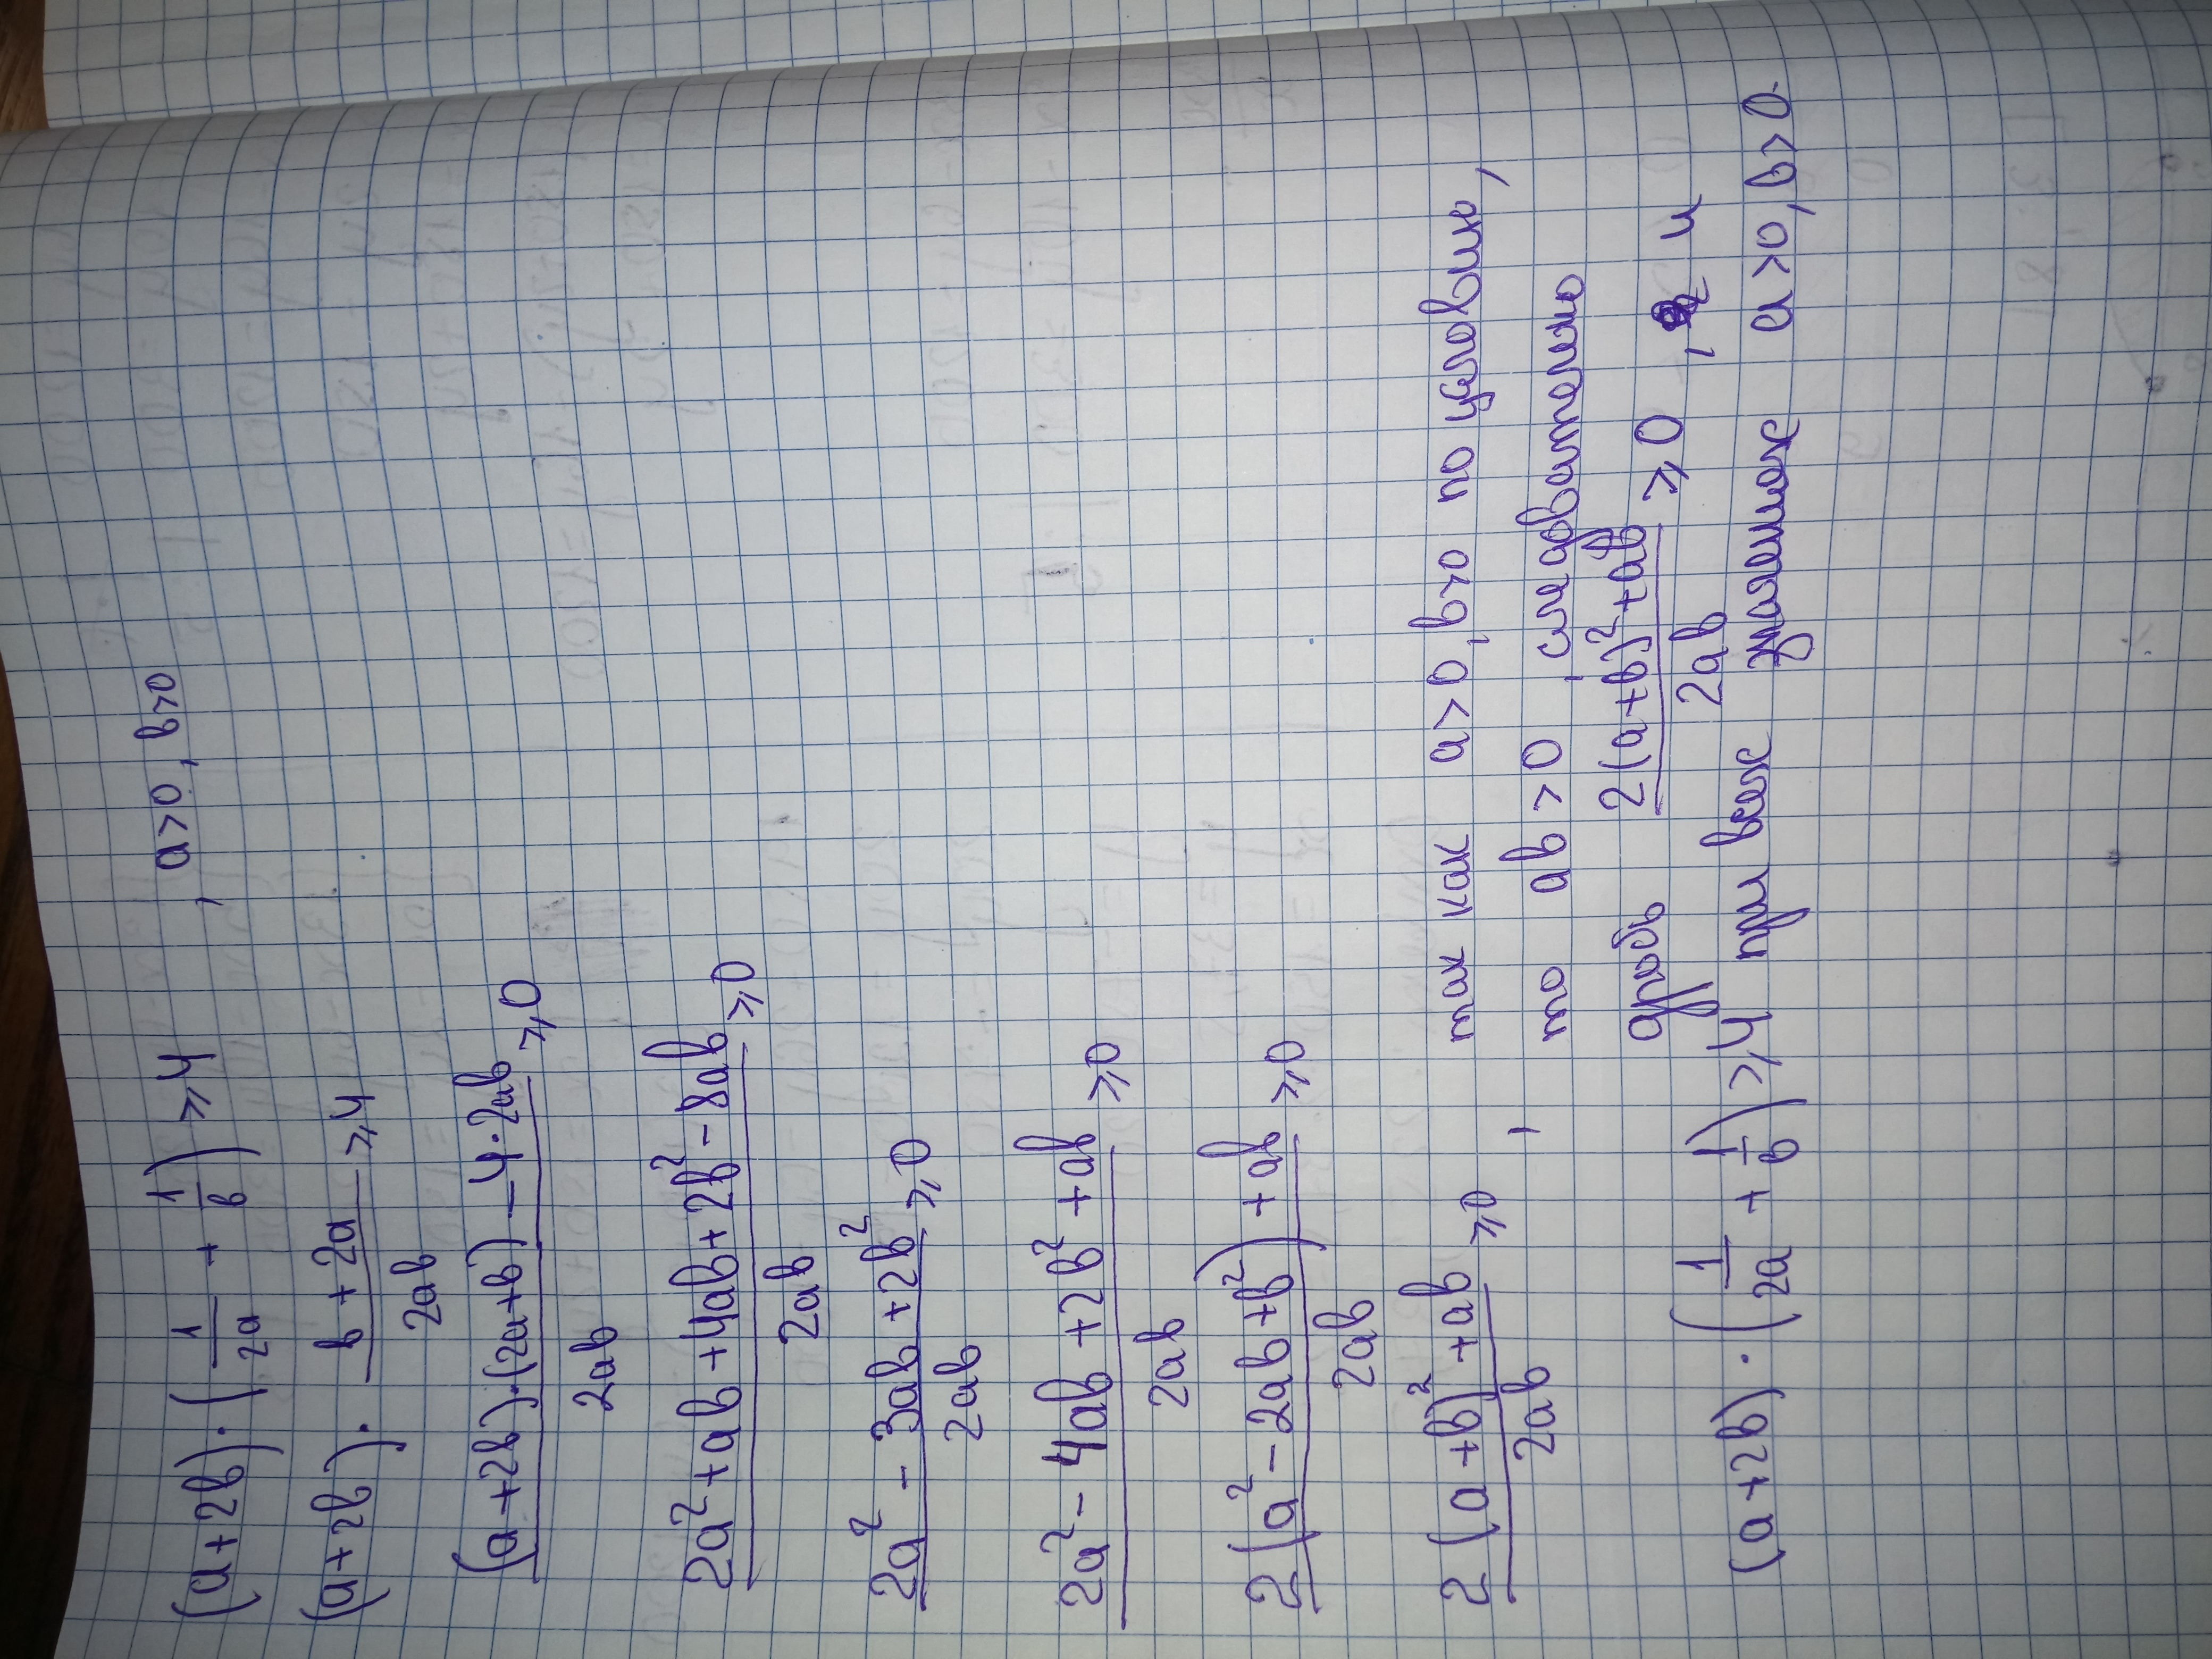 (a+2b)·(1/2a + 1/b) ⩾4 , a>0, b>0
(a+2b)· (b+2a)/2ab ⩾4
((a+2b)·(2a+b) – 4·2ab)/2ab ⩾0
(2a²+ab+4ab+2b²-8ab)/2ab ⩾0
(2a² - 3ab+2b²)/2ab ⩾0
(2a² - 4ab +2b² +ab)/2ab ⩾0
(2(a² - 2ab+b²) +ab)/2ab ⩾0
(2(a+b)² +ab)/2ab ⩾0 , так как a>0, b>0 по условию,
то ab>0, следовательно
дробь (2(a+b)²+ab)/2ab ⩾0, и
(a+2b)·(1/2a + 1/b) ⩾4 при всех значениях a>0, b>0.